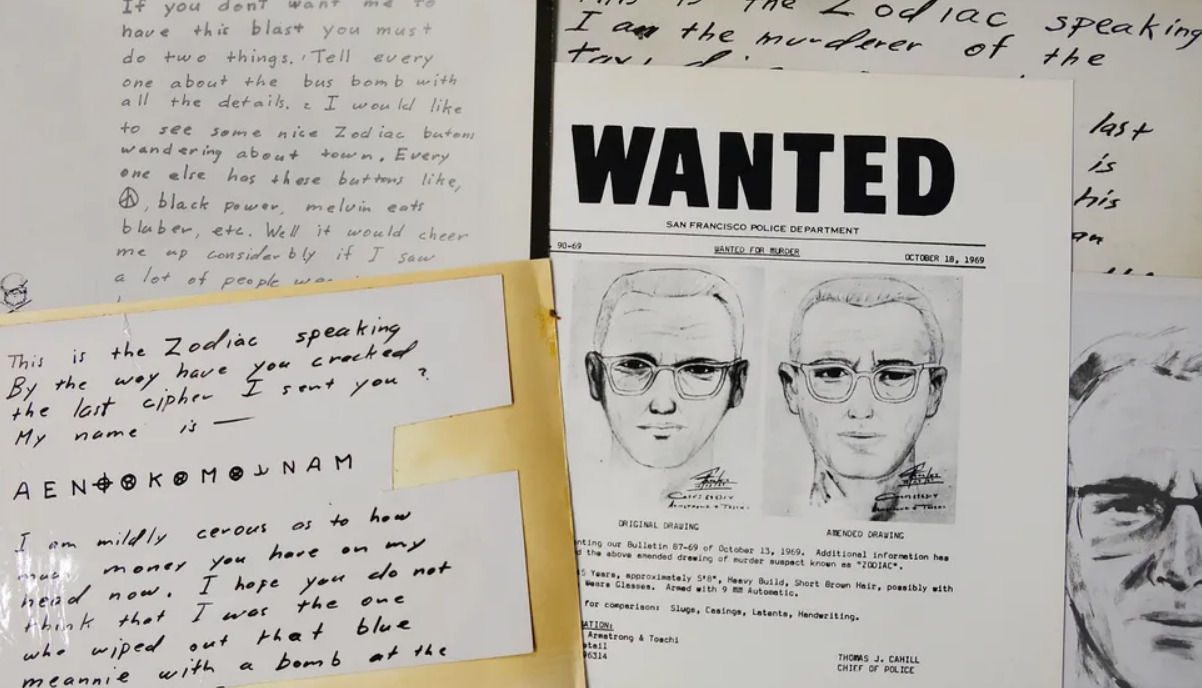 If you dont want me to
have this blast you must
do two things. 1 Tell every
one about the bus bomb with
all the details. 2 I would like
to see some nice Zodiac butons
wandering about town. Every
one else has these buttons like,
☮, black power, melvin eats
bluber, etc. Well it would cheer
me up considerbly if I saw
a lot of people
This is the Zodiac speaking
By the way have you cracked
the last cipher I sent you?
My name is —
A E N ⌖ ⊗ K ⊗ M ⊗ ⅃ N A M
I am mildly cerous as to how
much money you have on my
head now. I hope you do not
think that I was the one
who wiped out that blue
meannie with a bomb at the
This is the Zodiac speaking
I am the murderer of the
last
is
his
an
WANTED
SAN FRANCISCO POLICE DEPARTMENT
90-69 WANTED FOR MURDER OCTOBER 18, 1969
ORIGINAL DRAWING AMENDED DRAWING
nting our Bulletin 87-69 of October 13, 1969. Additional information has
d the above amended drawing of murder suspect known as "ZODIAC".
5 Years, approximately 5'8", Heavy Build, Short Brown Hair, possibly with
Wears Glasses. Armed with 9 MM Automatic.
for comparison: Slugs, Casings, Latents, Handwriting.
ATION:
Armstrong & Toschi
etail
96314
THOMAS J. CAHILL
CHIEF OF POLICE